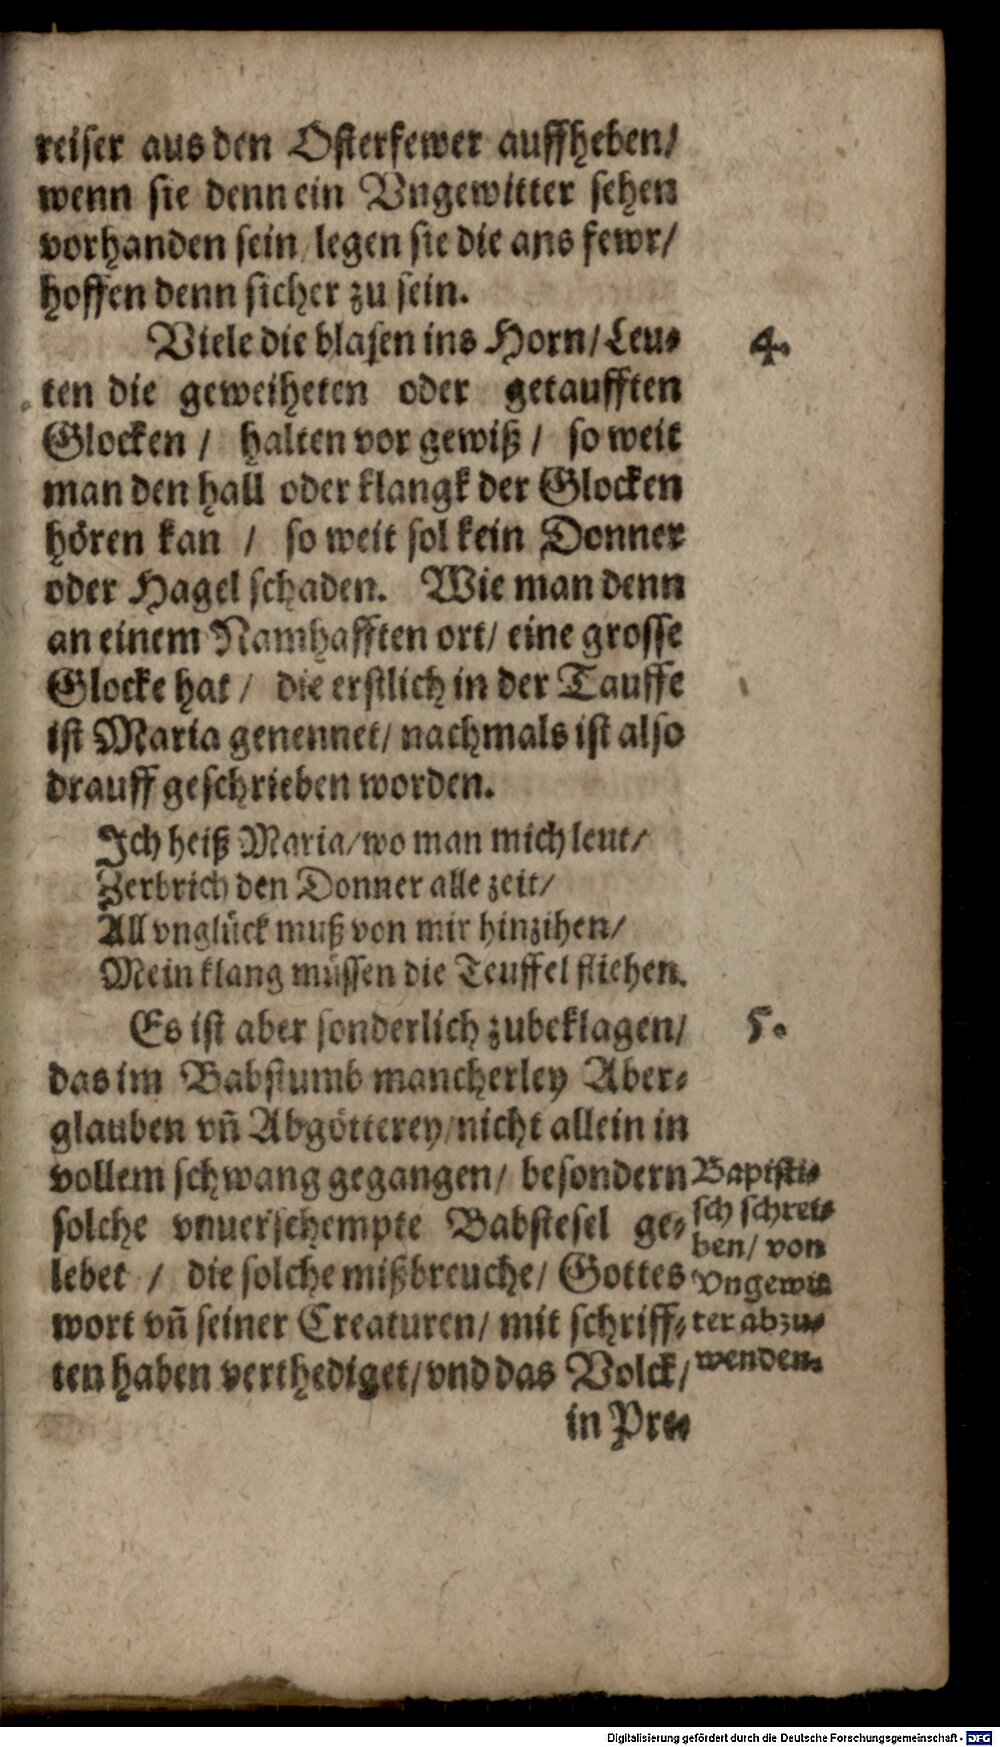 reiser aus den Osterfewer auffheben/
wenn sie denn ein Vngewitter sehen
vorhanden sein/ legen sie die ans fewr/
hoffen denn sicher zu sein.
Viele die blasen ins Horn/ Leu-
ten die geweiheten oder getaufften
Glocken / halten vor gewiß / so weit
man den hall oder klangk der Glocken
hören kan / so weit sol kein Donner
oder Hagel schaden. Wie man denn
an einem Namhafften ort/ eine grosse
Glocke hat / die erstlich in der Tauffe
ist Maria genennet/ nachmals ist also
drauff geschrieben worden.
Ich heiß Maria/ wo man mich leut/
Zerbrich den Donner alle zeit/
All vnglück muß von mir hinzihen/
Mein klang müssen die Teuffel fliehen.
Es ist aber sonderlich zubeklagen/
das im Babstumb mancherley Aber-
glauben vn̄ Abgötterey/ nicht allein in
vollem schwang gegangen/ besondern
solche vnuerschempte Babstesel ge-
lebet / die solche mißbreuche/ Gottes
wort vn̄ seiner Creaturen/ mit schriff-
ten haben verthediget/ vnd das Volck/
in Pre-
4.
5.
Bapisti-
sch schrei-
ben/ von
Vngewit
ter abzu-
wenden.
Digitalisierung gefördert durch die Deutsche Forschungsgemeinschaft - DFG